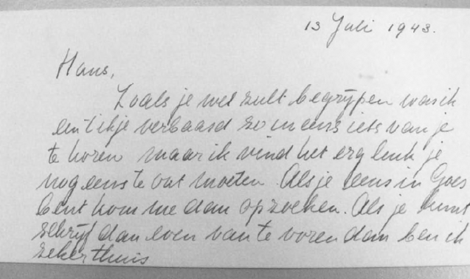 13 Juli 1943.
Hans,
Zoals je wel zult begrijpen was ik
een tikje verbaasd zo ineens iets van je
te horen maar ik vind het erg leuk je
nog eens te ontmoeten. Als je eens in Goes
bent kom me dan opzoeken. Als je komt
schrijf dan even van te voren dan ben ik
zeker thuis